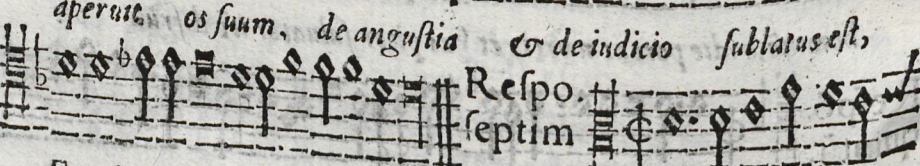 aperuit os ſuum, de anguſtia & de iudicio ſublatus eſt,
Reſpo.
ſeptim